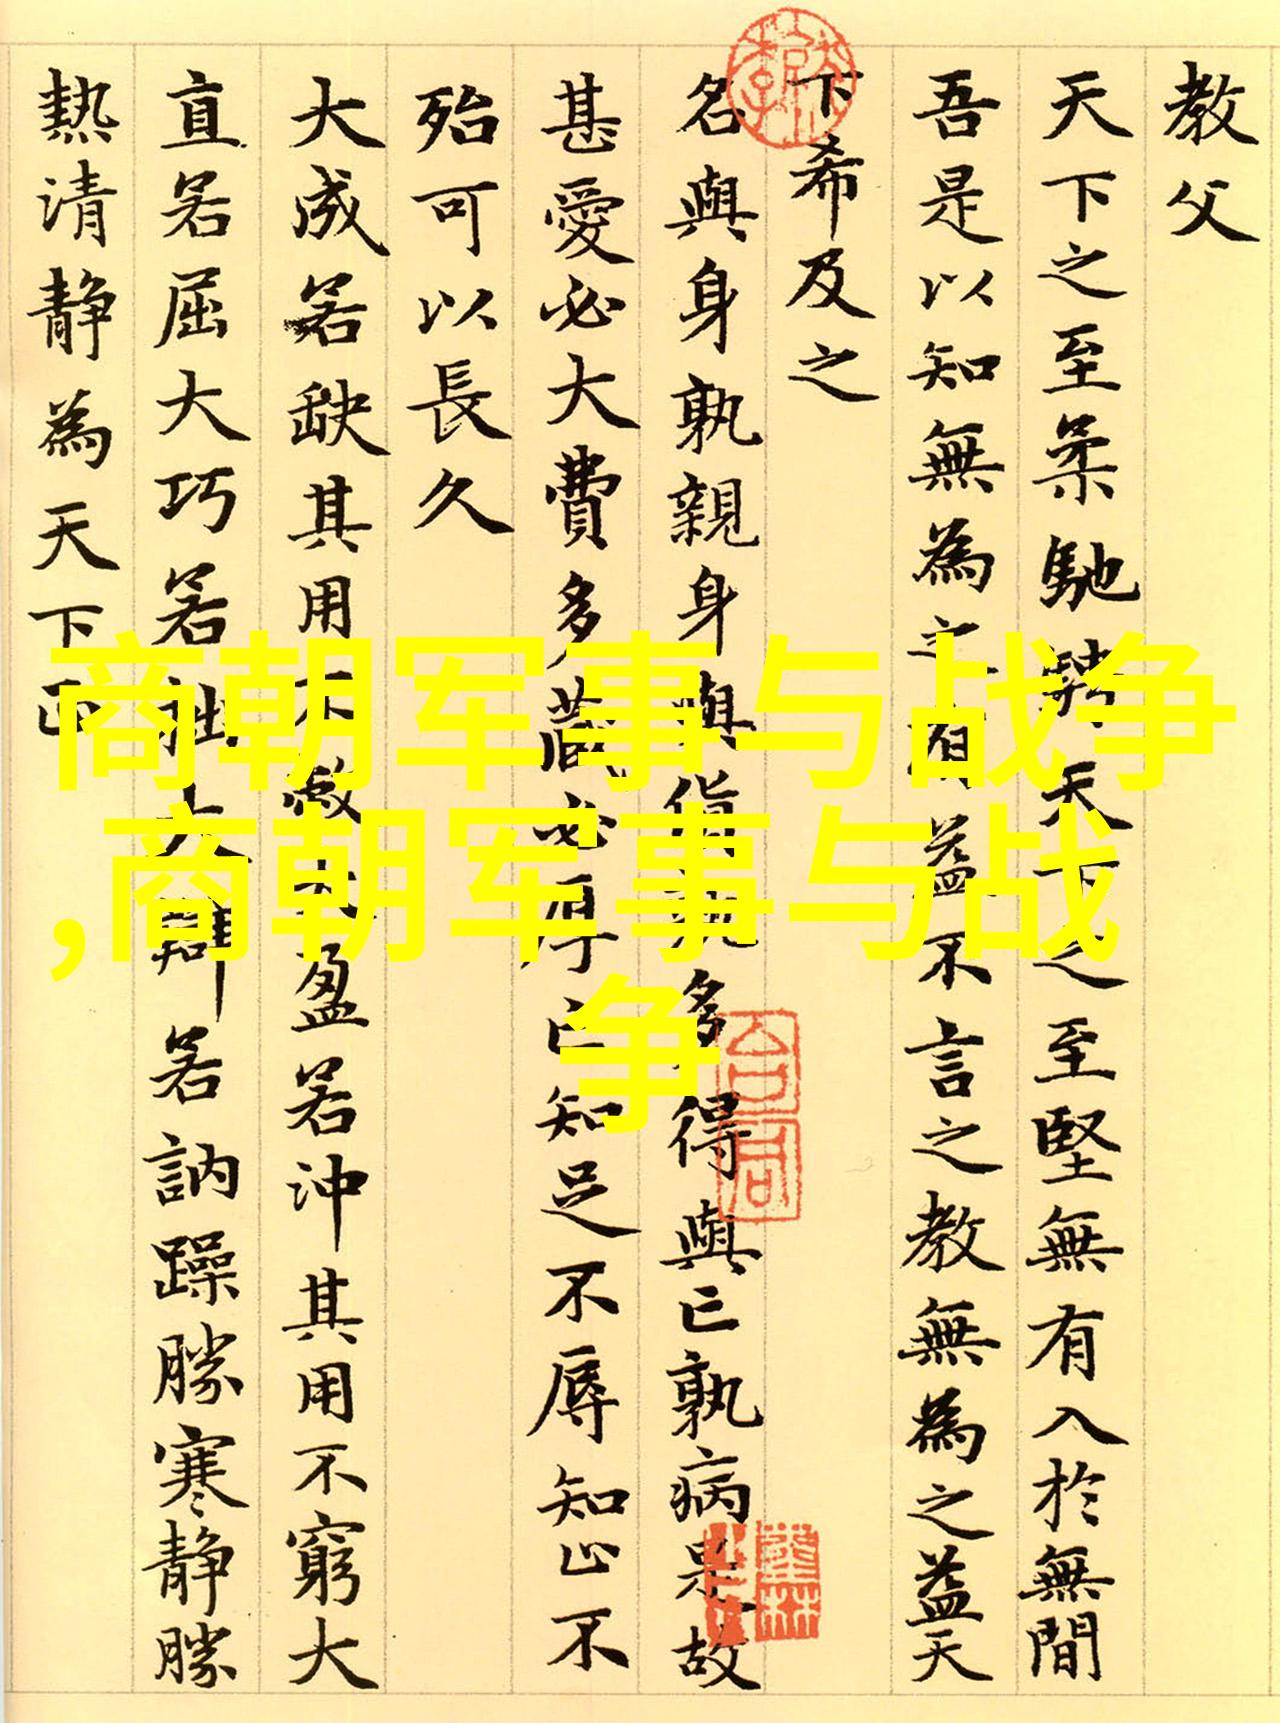 教父
天下之至柔馳騁天下之至堅無有入於無間
吾是以知無為之有益不言之教無為之益天
下希及之
名與身孰親身與貨孰多得與亡孰病是故
甚愛必大費多藏必厚亡知足不辱知止不
殆可以長久
大成若缺其用不敝大盈若沖其用不窮大
直若屈大巧若拙大辯若訥躁勝寒靜勝
熱清靜為天下正
商朝军事与战争
,商朝军事与战
争